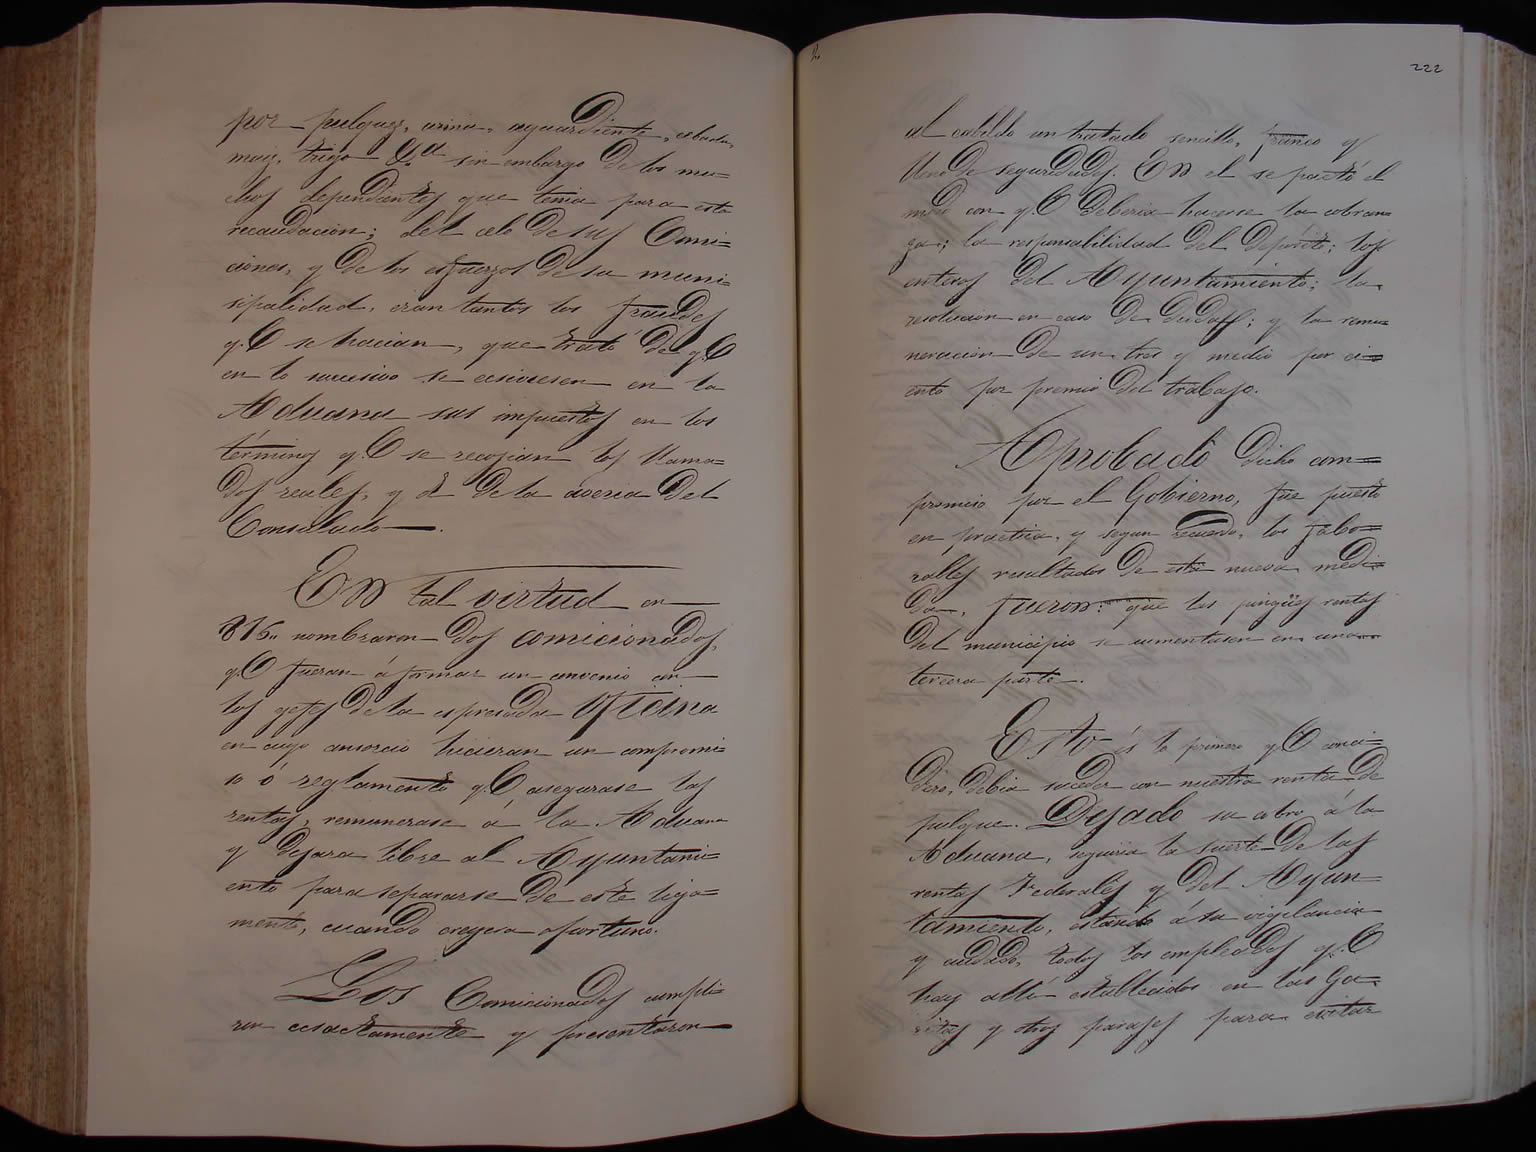 por pulques, arina, aguardiente, cebada,
maiz, trigo &.a sin embargo de los mu=
chos dependientes que tenia para esta
recaudacion; del celo de sus Comi=
ciones, y de los esfuerzos de su muni=
sipalidad, eran tantos los fraudes
q.e se hacian, que trató de q.e
en lo sucesivo se ecsiviesen en la
Aduana sus impuestos en los
términos q.e se recojian los llama=
dos reales, y el de la averia del
Consulado.
En tal virtud en
816,, nombraron dos comicionados,
q.e fueran á formar un convenio con
los gefes de la espresada Oficina
en cuyo consorcio hicieran un compromi=
so ó reglamento q.e asegurase las
rentas, remunerase á la Aduana
y dejara libre al Ayuntami=
ento para separarse de este liga=
mento, cuando creyera oportuno.
Los Comicionados cumplie=
ron ecsactamente y presentaron
222
al cabildo un tratado sencillo, franco y
lleno de seguridades. En el se pactó el
modo con q.e deberia hacerse la cobran=
za; la responsalilidad del deposito; los
enteros del Ayuntamiento; la
resolucion en caso de dudas; y la remu=
neracion de un tres y medio por ci=
ento por premio del trabajo.
Aprobado dicho com=
promiso por el Gobierno, fue puesto
en practica, y segun recuerdo, los fabo=
rables resultados de esta nueva medi=
da, fueron: que las pingües rentas
del municipio se aumentasen en una
tercera parte.
Esto és lo primero q.e consi=
dero, debia suceder con nuestra renta de
pulque. Dejado su cobro á la
Aduana, seguiria la suerte de las
rentas Federales y del Ayun=
tamiento, estando á su vigilancia
y cuidado, todos los empleados q.e
hay allí establecidos en las Ga=
ritas y otros parajes para evitar